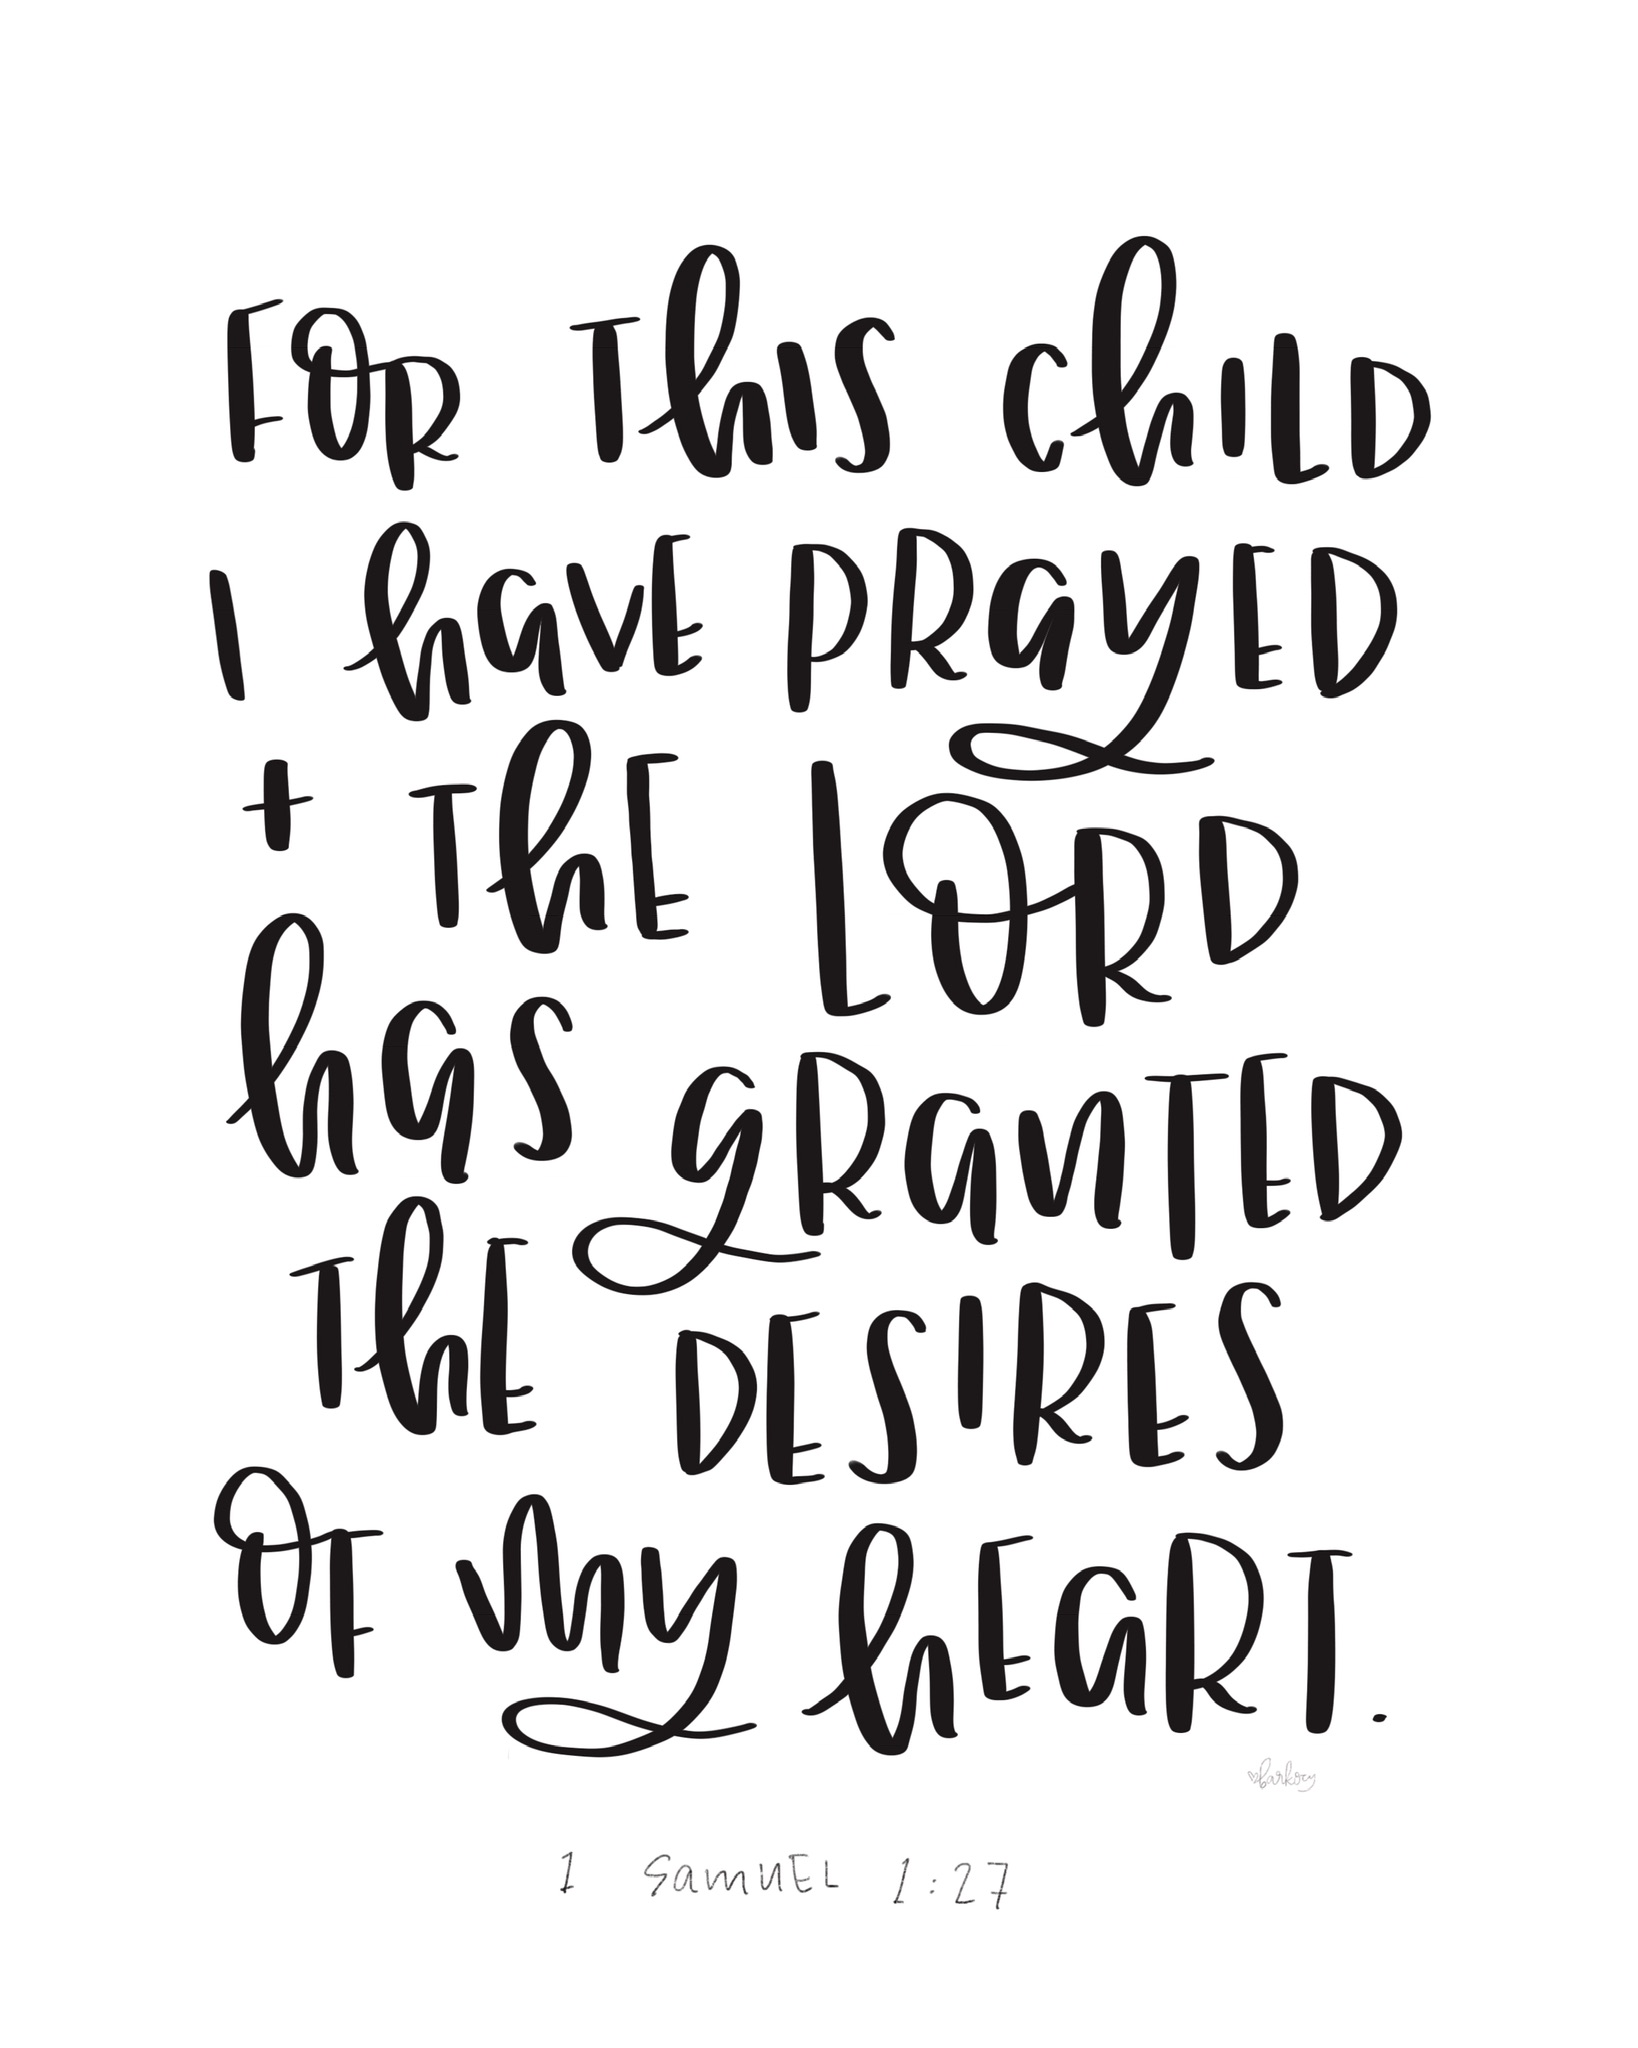 FOR ThIS ChILD
I haVE PRayED
+ ThE LORD
haS gRanTED
ThE DESIRES
OF my hEaRT.
1 SamuEL 1:27